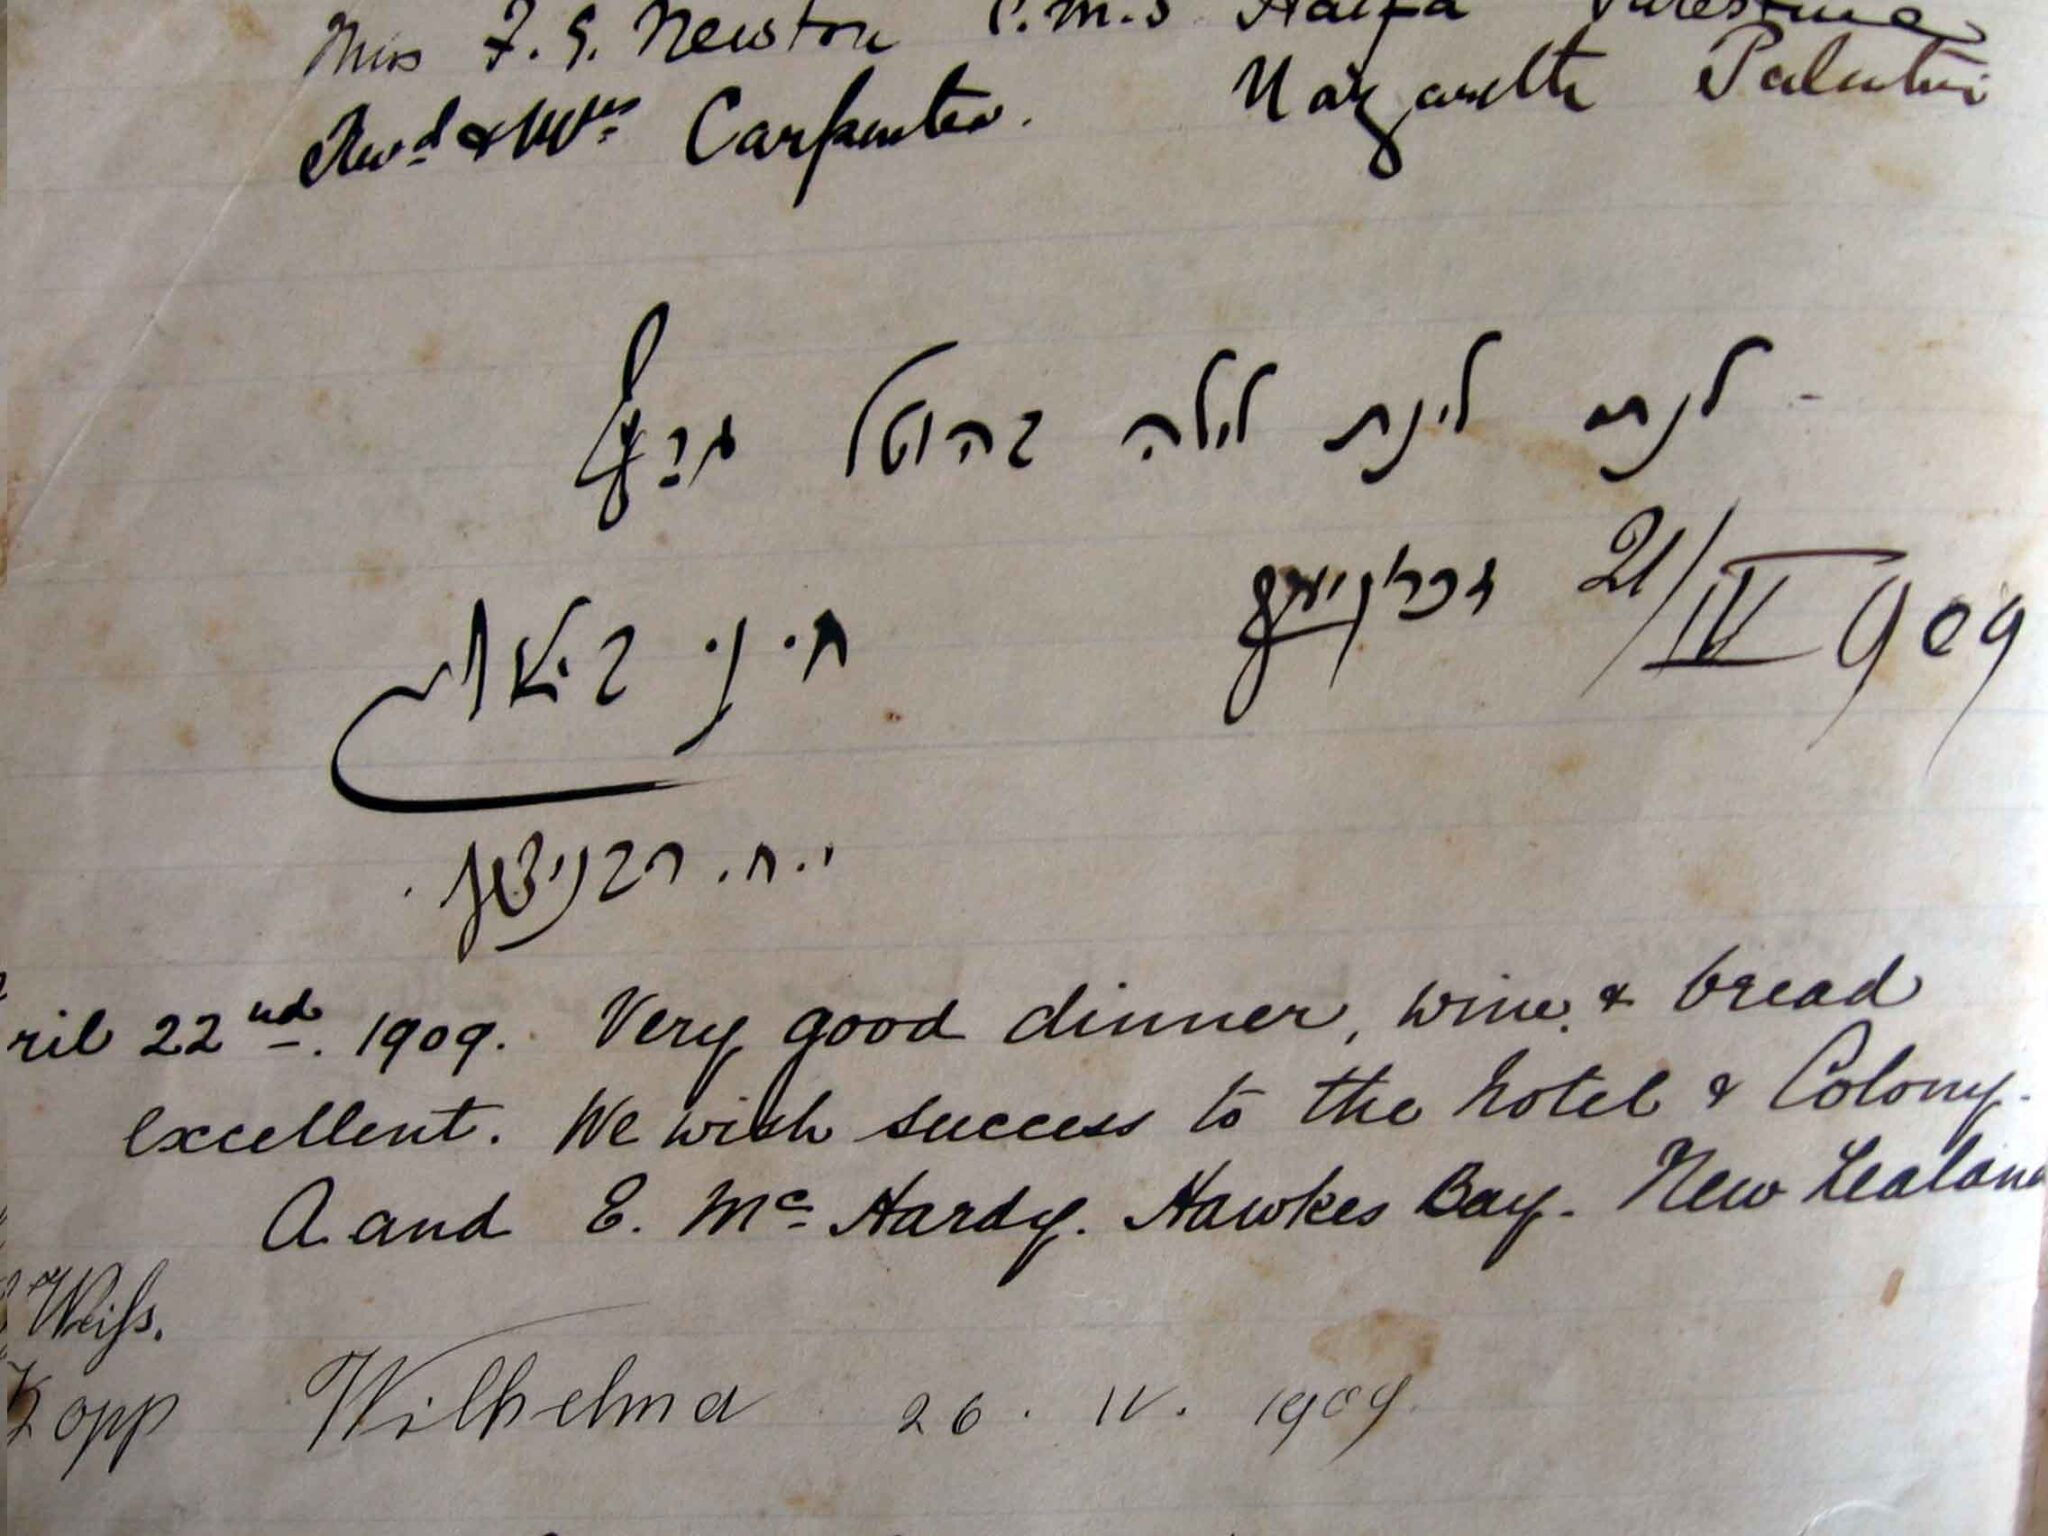 Miss F. G. Newton C.M.S Haifa Palestine
Revd & Mrs Carpenter. Nazareth
לנתי לינת לילה בהוטל גרף
21/IV 909
י. ח. רבניצקי.
ril 22nd. 1909. Very good dinner, wine, & bread
excellent. We wish success to the hotel & Colony.
A and E. Mc Hardy. Hawkes Bay. New Zealand
Weiſs.
Kopp Wilhelma 26. IV. 1909.